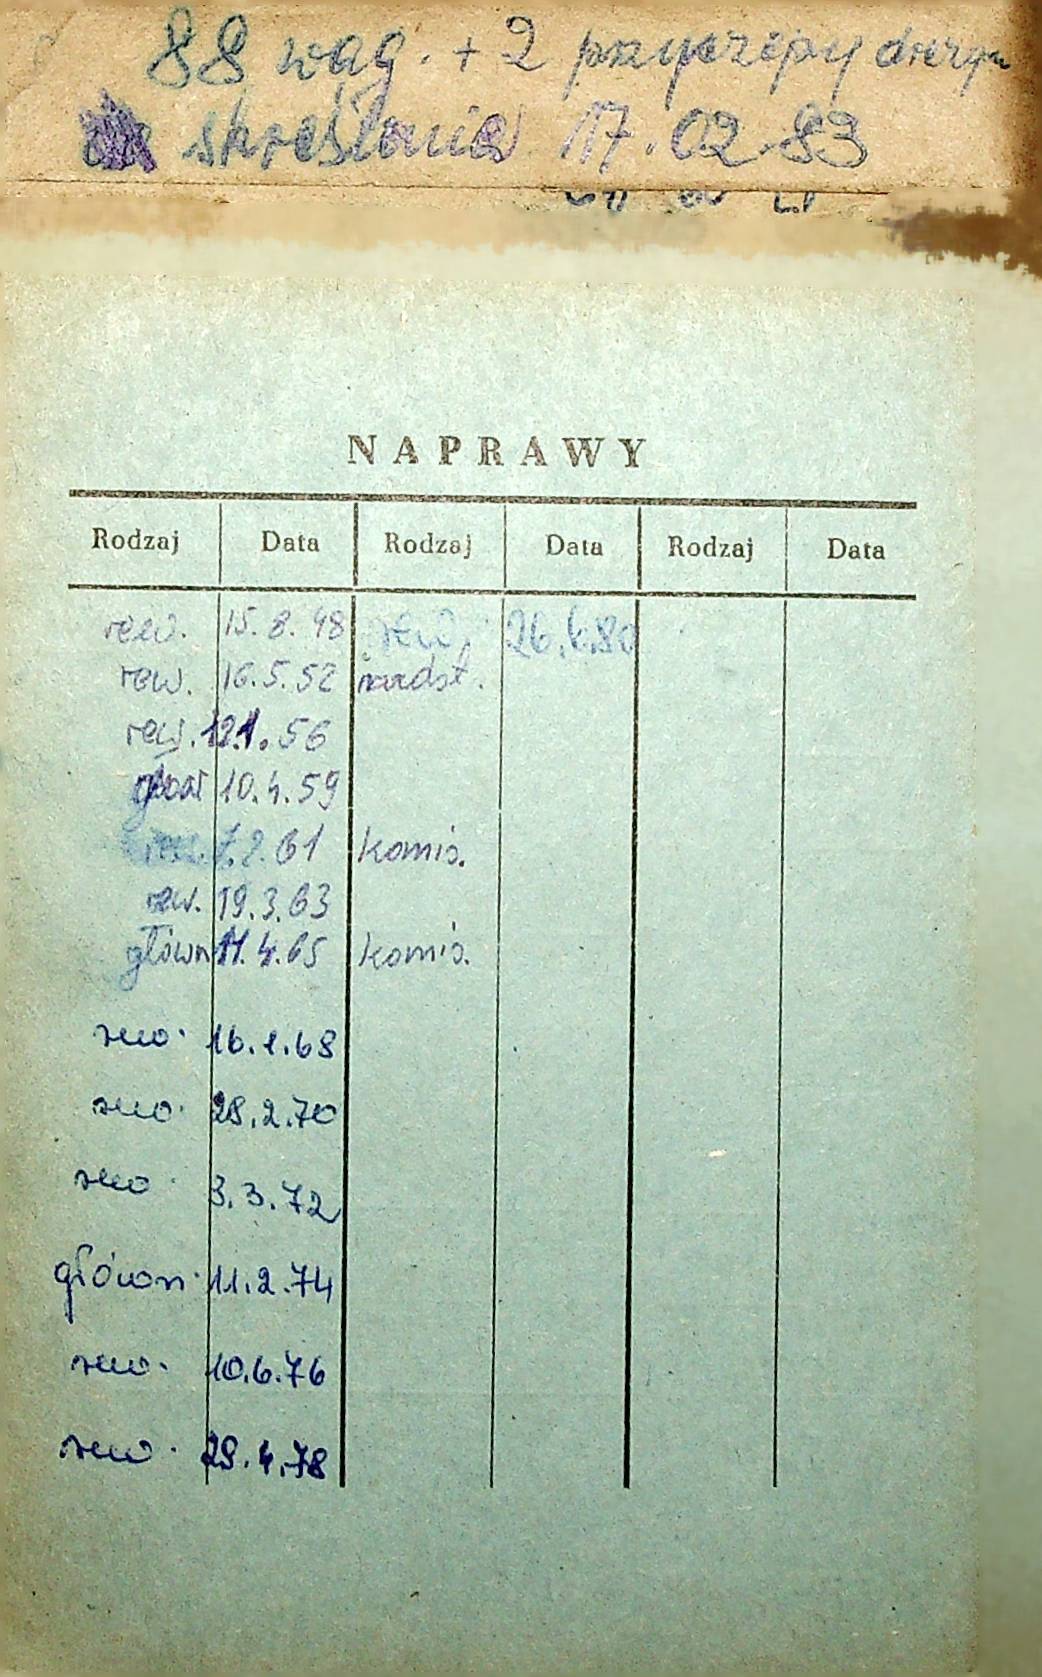 88 wag. + 2 przyczepy
skreślenia 17.02.83
NAPRAWY
Rodzaj Data Rodzaj Data Rodzaj Data
rew. 15.8.48 rew. 26.6.80
rew. 16.5.52
rew. 12.1.56
10.4.59
7.2.61 komis.
rew. 19.3.63
główn 11.4.65 komis.
rew. 16.1.68
rew. 28.2.70
rew. 3.3.72
główn. 11.2.74
rew. 10.6.76
rew. 29.4.78